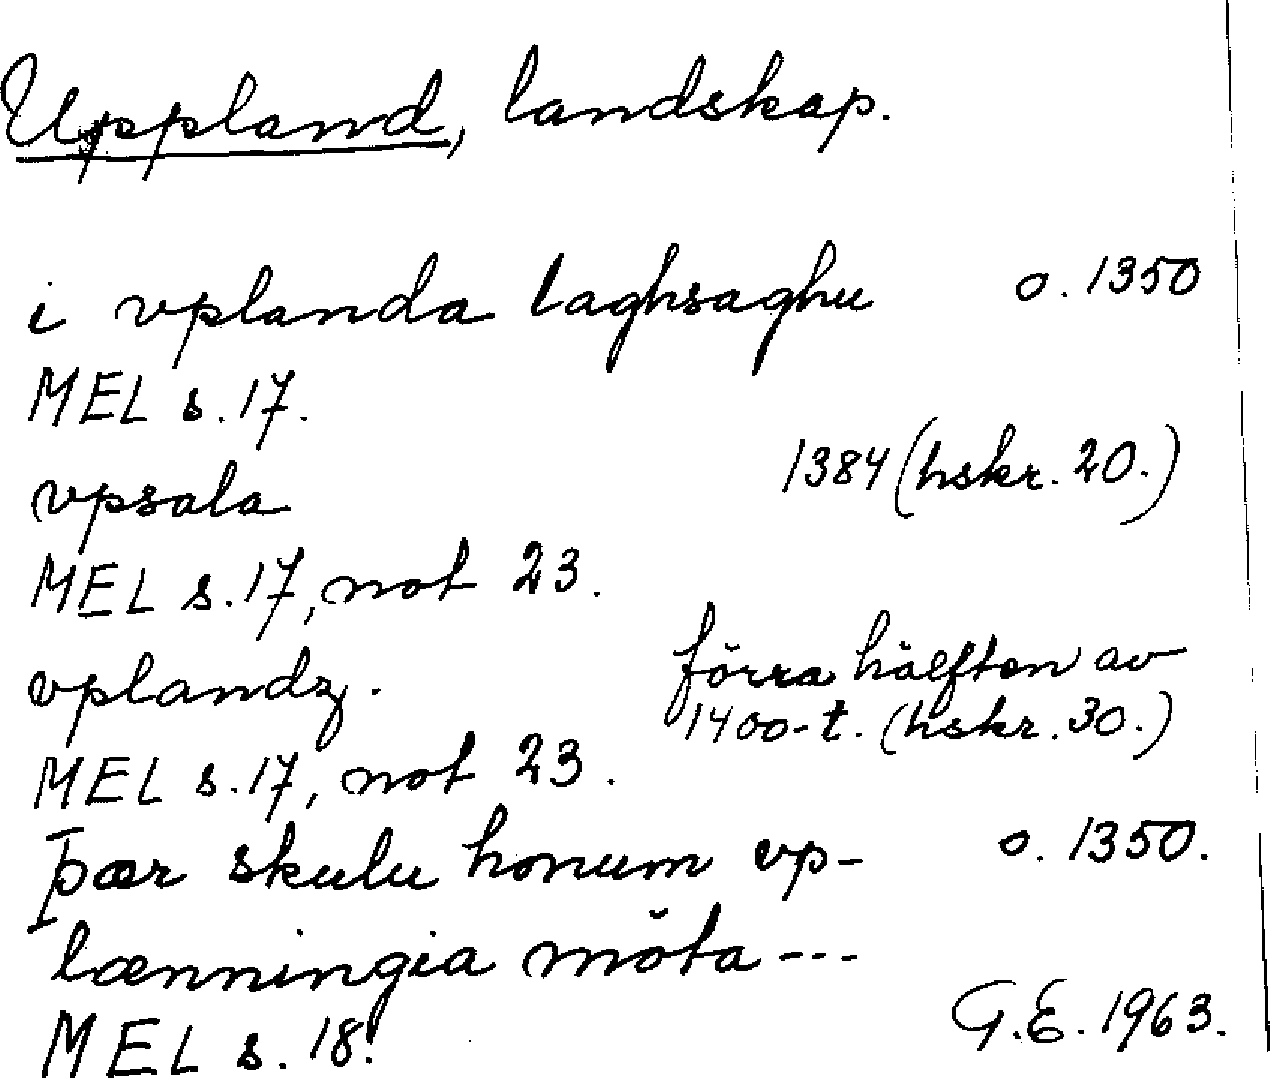 Uppland, landskap.
i vplanda laghsaghu o. 1350
MEL s. 17.
vpsala 1384 (hskr. 20.)
MEL s. 17, not 23.
vplandz. förra hälften av
1400-t. (hskr. 30.)
MEL s. 17, not 23.
Þær skulu honum vp- o. 1350.
lænningia möta ---
MEL s. 18. G.E. 1963.